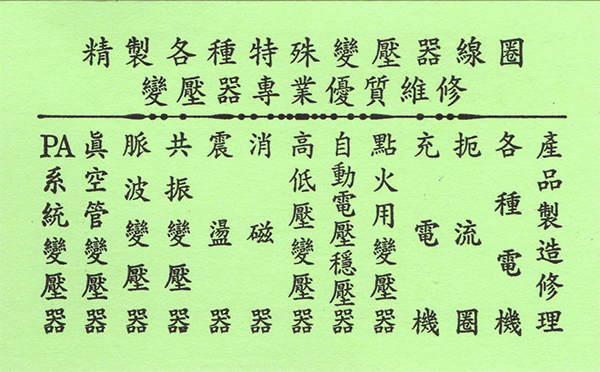 精製各種特殊變壓器線圈
變壓器專業優質維修
產品製造修理
各種電機
扼流圈
充電機
點火用變壓器
自動電壓穩壓器
高低壓變壓器
消磁器
震盪器
共振變壓器
脈波變壓器
眞空管變壓器
PA系統變壓器